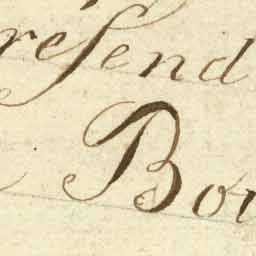 reſend
Bou